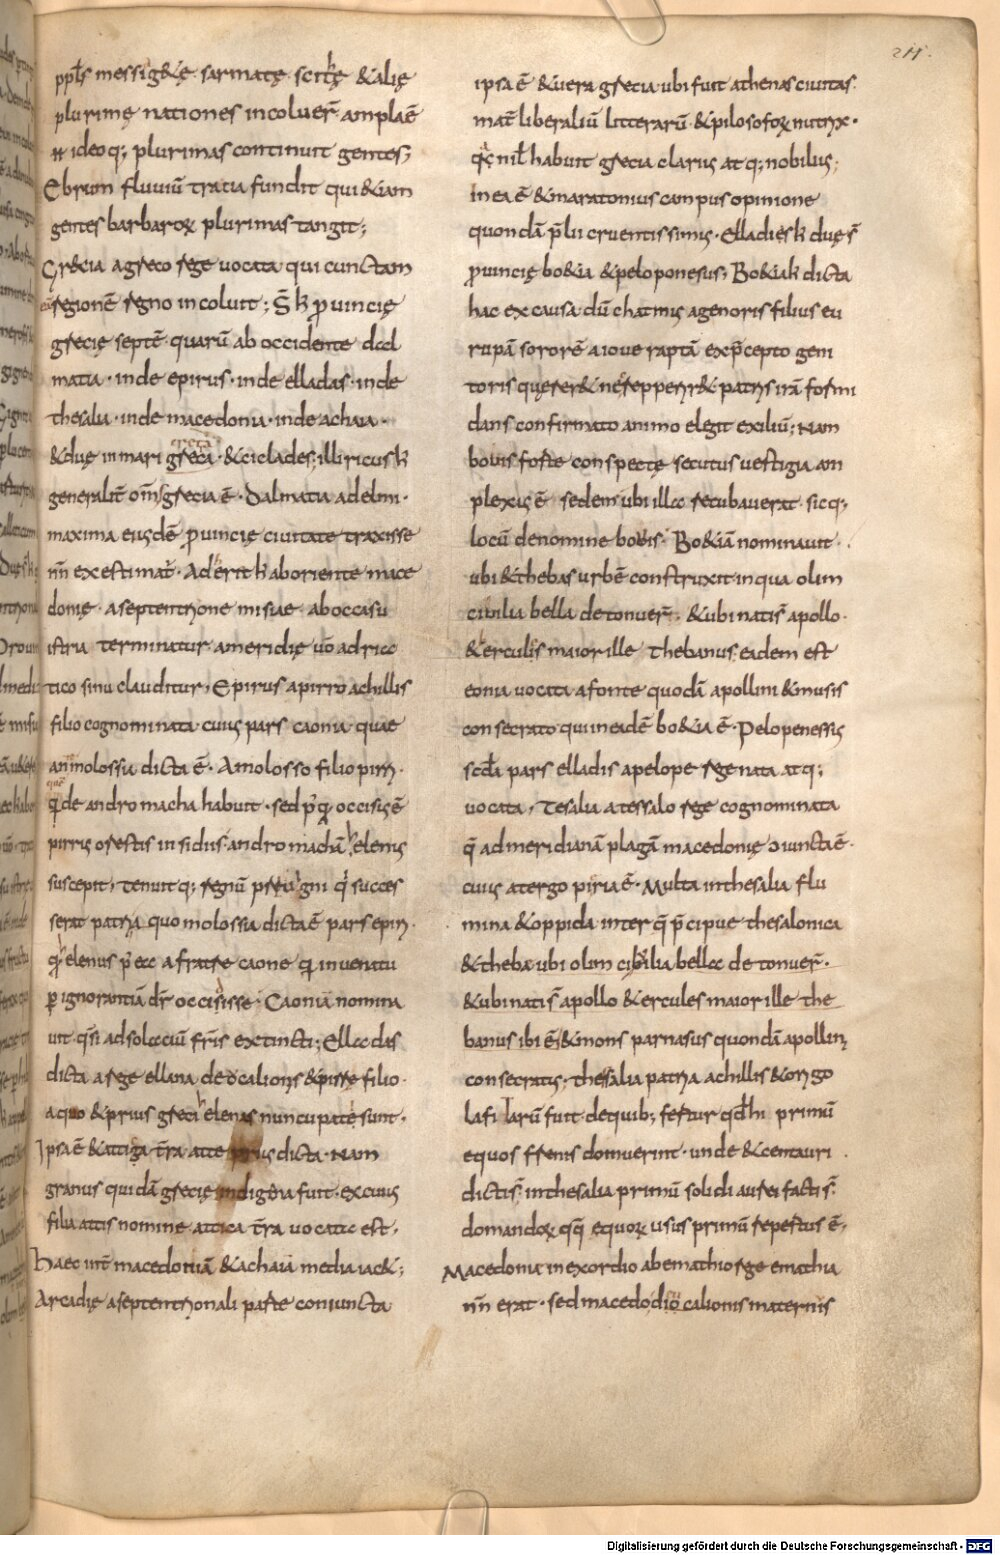 211.
ppl̄s messig&ę sarmatę scitę &alię
plurimę nationes incoluer̄ ampla ē
n̄ ideoq; plurimas continuit gentes;
Ebrum fluuiū tracia fundit qui &iam
gentes barbaroꝝ plurimas tangit;
Gr&cia a greco rege uocata qui cunctam
regionē regno incoluit; S̄ k puincię
grecię septē quarū ab occidente dal
matia · inde epirus · inde elladas · inde
thesalia · inde macedonia · inde achaia ·
creta
&duę in mari greca · &ciclades; illiricus k
generalit̄ om̄s grecia ē · Dalmatia adelmi ·
maxima eiusdē puincię ciuitate traxisse
nn̄ excestimat̄ · k ab oriente mace
donię · a septentrione misiae ab occasu
istria terminatur a meridię uō adrica
tico sinu clauditur, Epirus a pirro achillis
filio cognominata cuius pars caonia quae
an molossia dicta ē · A molosso filio pirri ·
de andromacha habuit · sed occisis ē
pirris orestis insidiis andromachā elenus
suscepit, tenuitq; regnū succes
serat patria quo molossia dicta ē pars epiri ·
elenus p̄ ea a fratre caone q inuenatu
p ignorantiā dr̄ occisisse · Caoniā nomina
uit qsi ad solaciū fr̄is extincti; Elladas
dicta a rege ellana deocalionis &pirre filio ·
a quo &prius greci elenas nuncupate sunt ·
Ipsa ē &attiga tr̄a atte dicta · Nam
granus quidā grecię indigena fuit · ex cuius
filia attis nomine attica tr̄a uocata est,
Haec int̄ macedoniā &achaiā media iac&;
Arcadię a septentrionali parte coniuncta
ipsa ē &uera grecia ubi fuit athenas ciuitas ·
mat̄ liberaliū litterarū &pilosoforꝝ nutrix ·
nil habuit grecia clarius atq; nobilius;
In ea ē &maratonius campus opinione
quondā p̄lii cruentissimis · Elladies k duę s̄
puincię bo&ia &peloponesus; Bo&ia k dicta
hac ex causa dū chatmis agenoris filius eu
rupā sororē a ioue raptā ex p̄cepto geni
toris quęrer& reppenr& patris irā formi
dans confirmato animo elegit exiliū; Nam
bouis forte conspectę secutus uestigia am
plexis ē sedem ubi illa recubauerat · sicq;
locū de nomine bouis · Bo&iā nominauit ·
ubi &thebas urbē construxit in qua olim
cibilia bella detonuer̄ · &ubi natis̄ apollo ·
&erculis maior ille Thebanus eadem est
eonia uocata a fonte quodā apollini &musis
consecrato qui in eadē bo&ia ē · Pelopenessis
scd̄a pars elladis a pelope rege nata atq;
uocata, Tesalia a tessalo rege cognominata
q̄ ad meridianā plagā macedonię ɔiuncta ē ·
cuius a tergo piria ē · Multa in thesalia flu
mina &oppida inter q̄ p̄cipue thesalonica
&thebae ubi olim cibilia bella detonuer̄ ·
&ubi natis̄ apollo &ercules maior ille the
banus ibi ē &mons parnasus quondā apollini
consecratis, thessalia patria achillis &origo
lafi larū fuit de quib; fertur qd̄ hi primū
equos frenis domuerint · unde &centauri ·
dictis̄ in thesalia primū solidi aurei factis̄
domandoꝝ qq̄ equoꝝ usus primū repertus ē,
Macedonia in exordio ab emathio rege emathia
nn̄ erat · sed macedo diō calionis maternis
Digitalisierung gefördert durch die Deutsche Forschungsgemeinschaft - DFG